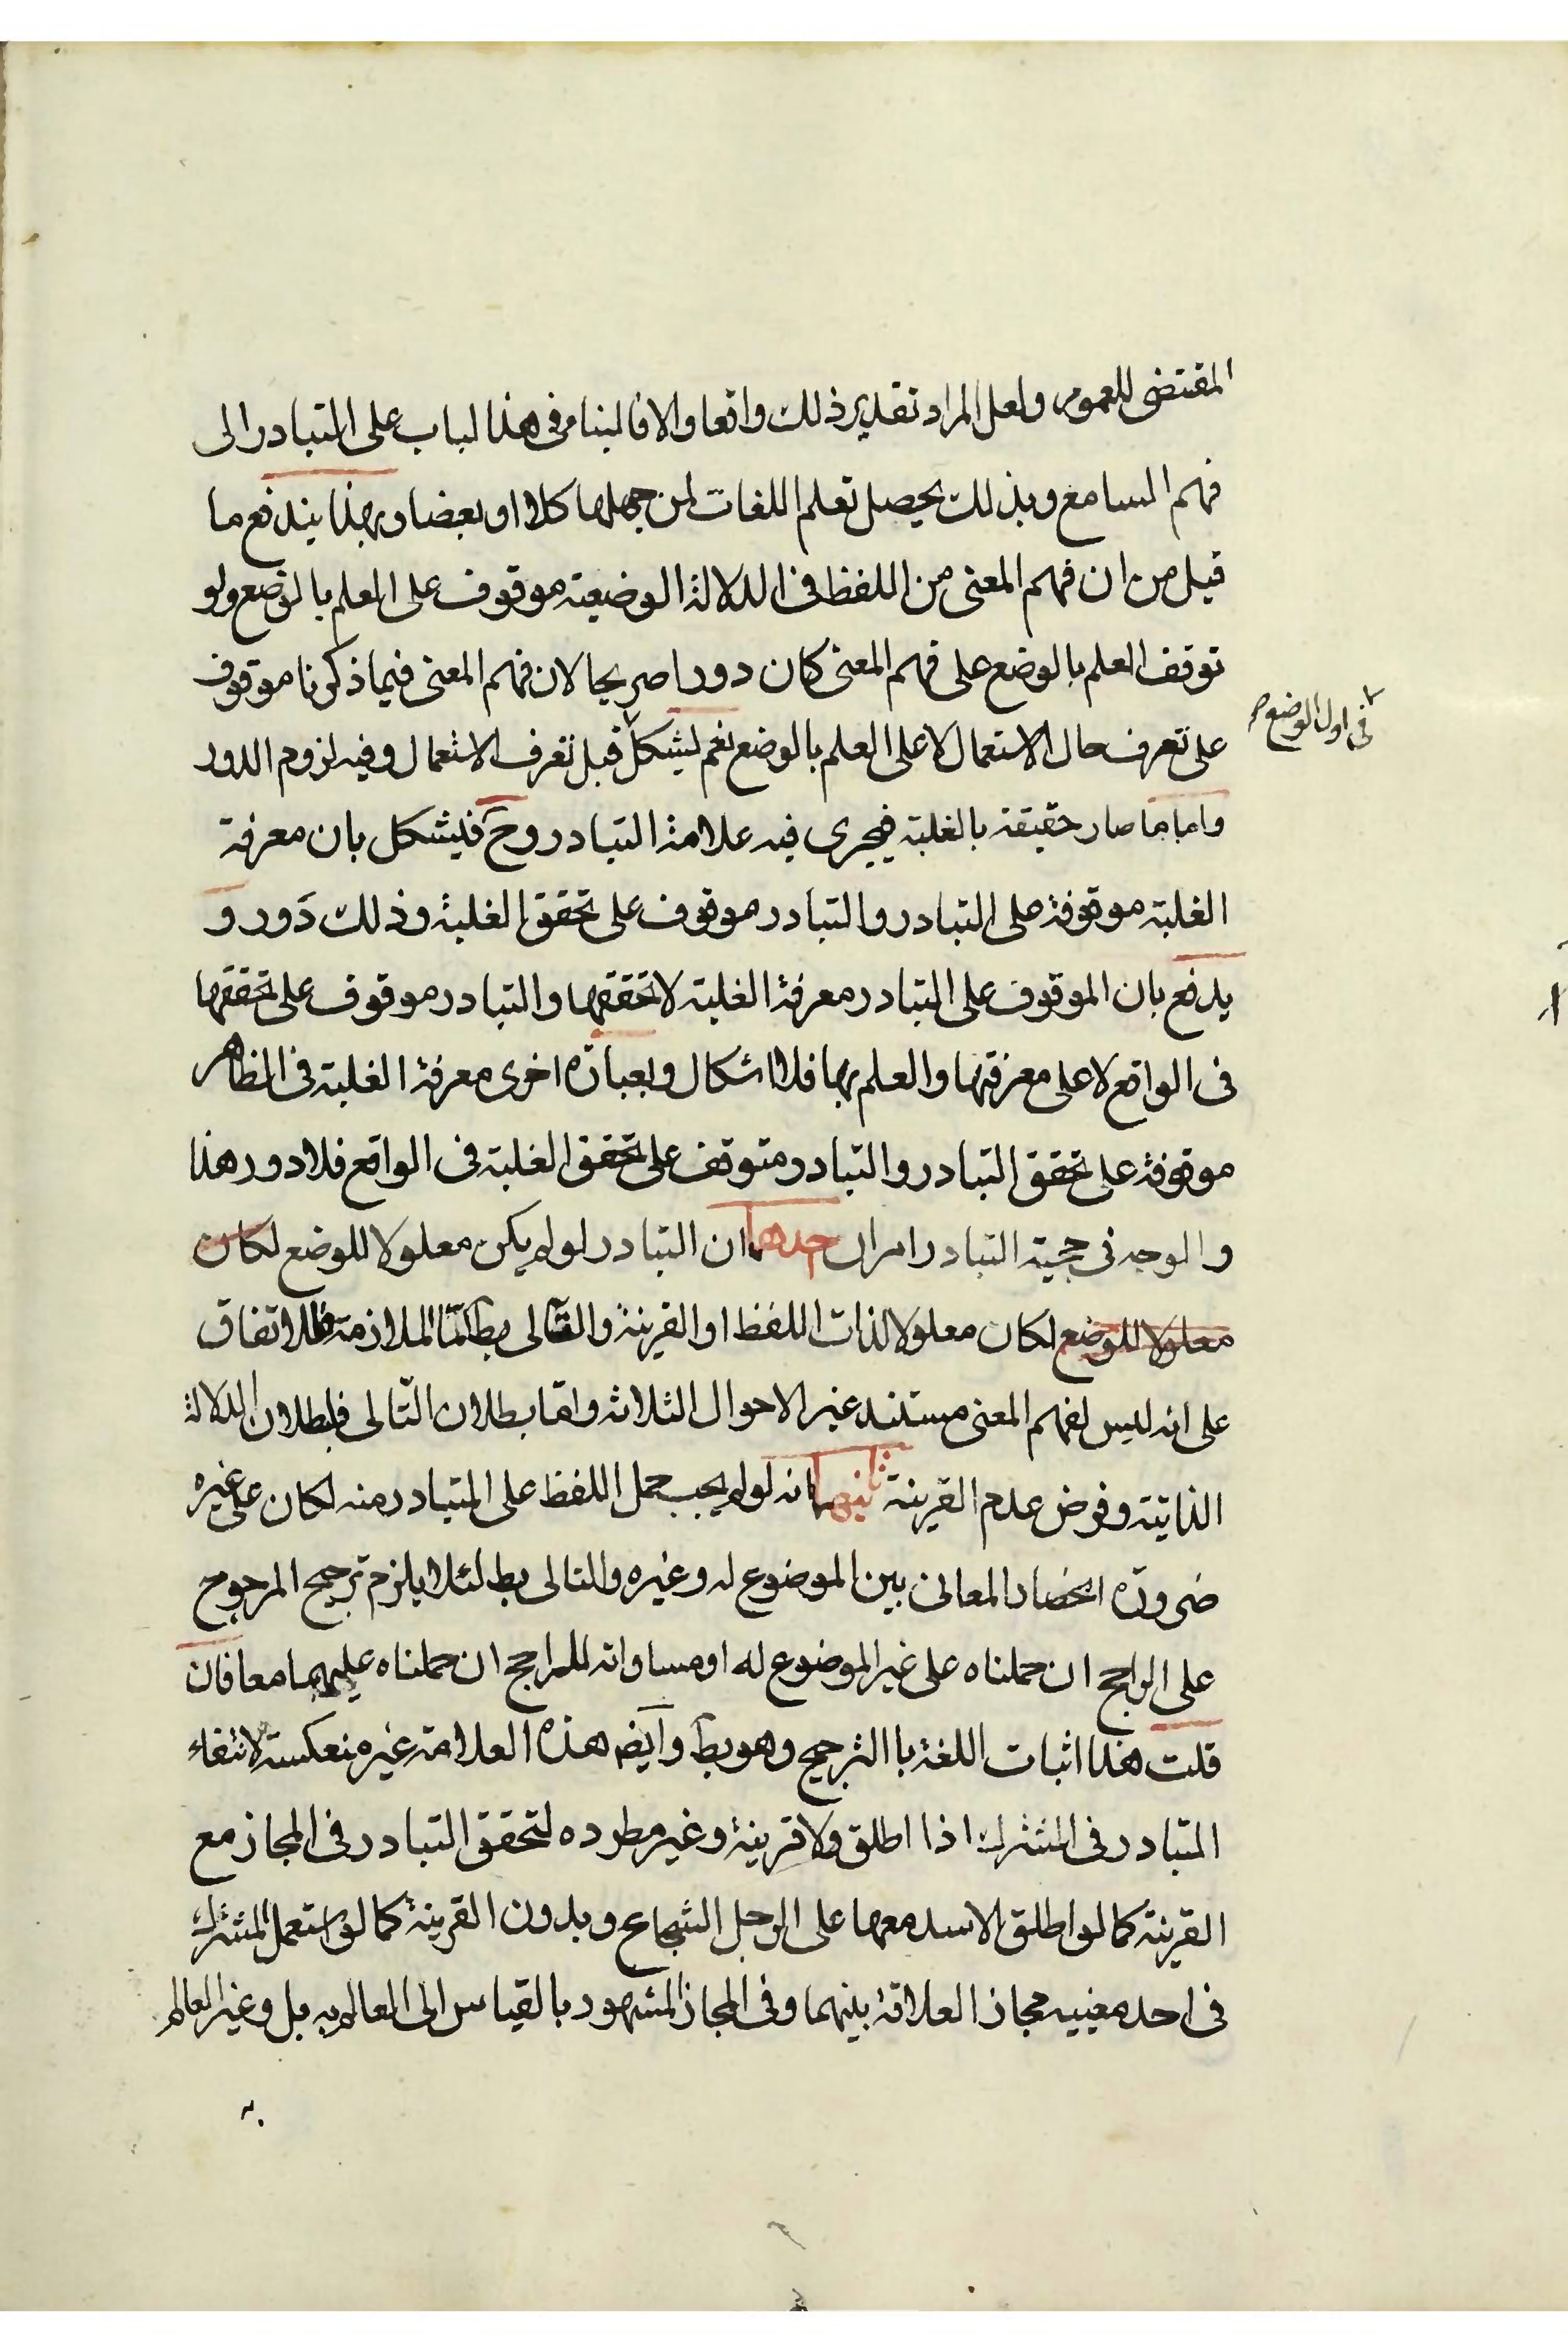 المقتضى للعموم ولعل المراد تقدير ذلك واقعا والا فالبناء فى هذا لباب على التبادر الى
فهم السامع وبذلك يحصل تعلم اللغات لمن جهلها كلا او بعضا وبهذا يندفع ما
قيل من ان فهم المعنى من اللفظ فى الدلالة الوضعية موقوف على العلم بالوضع ولو
توقف العلم بالوضع على فهم المعنى كان دورا صريحا لان فهم المعنى فيما ذكرنا موقوف
على تعرف حال الاستعمال لا على العلم بالوضع نعم يشكل قبل تعرف الاستعمال وفيه لزوم الدور
فى اول الوضع
واما ما صار حقيقة بالغلبة فيجرى فيه علامة التبادر وح فيشكل بان معرفة
الغلبة موقوفة على التبادر والتبادر موقوف على تحقق الغلبة وذلك دور و
يدفع بان الموقوف على التبادر معرفة الغلبة لا تحققها والتبادر موقوف على تحققها
فى الواقع لا على معرفتها والعلم بها فلا اشكال وبعبارة اخرى معرفة الغلبة فى الظاهر
موقوفة على تحقق التبادر والتبادر متوقف على تحقق الغلبة فى الواقع فلا دور هذا
والوجه فى حجية التبادر امران احدهما ان التبادر لو لم يكن معلولا للوضع لكان
معلولا للوضع لكان معلولا لذات اللفظ او القرينة والتالى بط اما الملازمة فللاتفاق
على انه ليس لفهم المعنى مستند غير الاحوال الثلاثه واما بطلان التالى فلبطلان الدلالة
الذاتية وفرض عدم القرينة ثانيهما انه لو لم يجب حمل اللفظ على المتبادر منه لكان على غيره
ضرورة انحصار المعانى بين الموضوع له وغيره والتالى بط لئلا يلزم ترجيح المرجوح
على الراجح ان حملناه على غير الموضوع له او مساواته للراجح ان حملناه عليهما معا فان
قلت هذا اثبات اللغة باالترجيح وهو بط وايضا هذه العلامة غير منعكسة لانتفاء
التبادر فى المشترك اذا اطلق ولا قرينة وغير مطرده لتحقق التبادر فى المجاز مع
القرينة كما لو اطلق الاسد معها على الرجل الشجاع وبدون القرينة كما لو استعمل المشترك
فى احد معنييه مجاز العلاقة بينهما وفى المجاز المشهور بالقياس الى العالم به بل وغير العالم
به